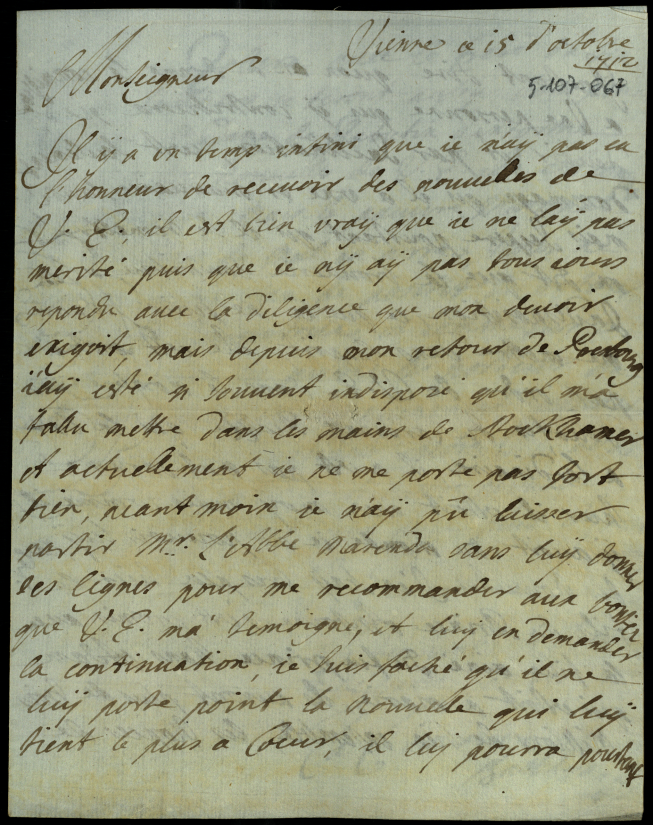 Vienne ce 15 d'octobre
1712
5-107-067
Monseigneur
Il y a un temp infini que ie n'aÿ pas eu
l'honneur de recevoir des nouvelles de
V. E., il est bien vraÿ que ie ne laÿ pas
merité puis que ie nÿ aÿ pas tousiours
repondu avec la diligence que mon devoir
exigoit, mais depuis mon retour de Presbourg
i'aÿ esté si souvent indisposé qu'il m'a
fallu mettre dans les mains de
et actuellement ie ne me porte pas fort
bien, neant moin ie n'aÿ pû laisser
partir Mr. L'Abbe sans luÿ donner
ces lignes pour me recommander aux bontez
que V. E. m'a temoigné, et luÿ en demander
la continuation, ie suis faché qu'il ne
luÿ porte point la nouvelle qui luÿ
tient le plus a Coeur, il luÿ pourra pourtant